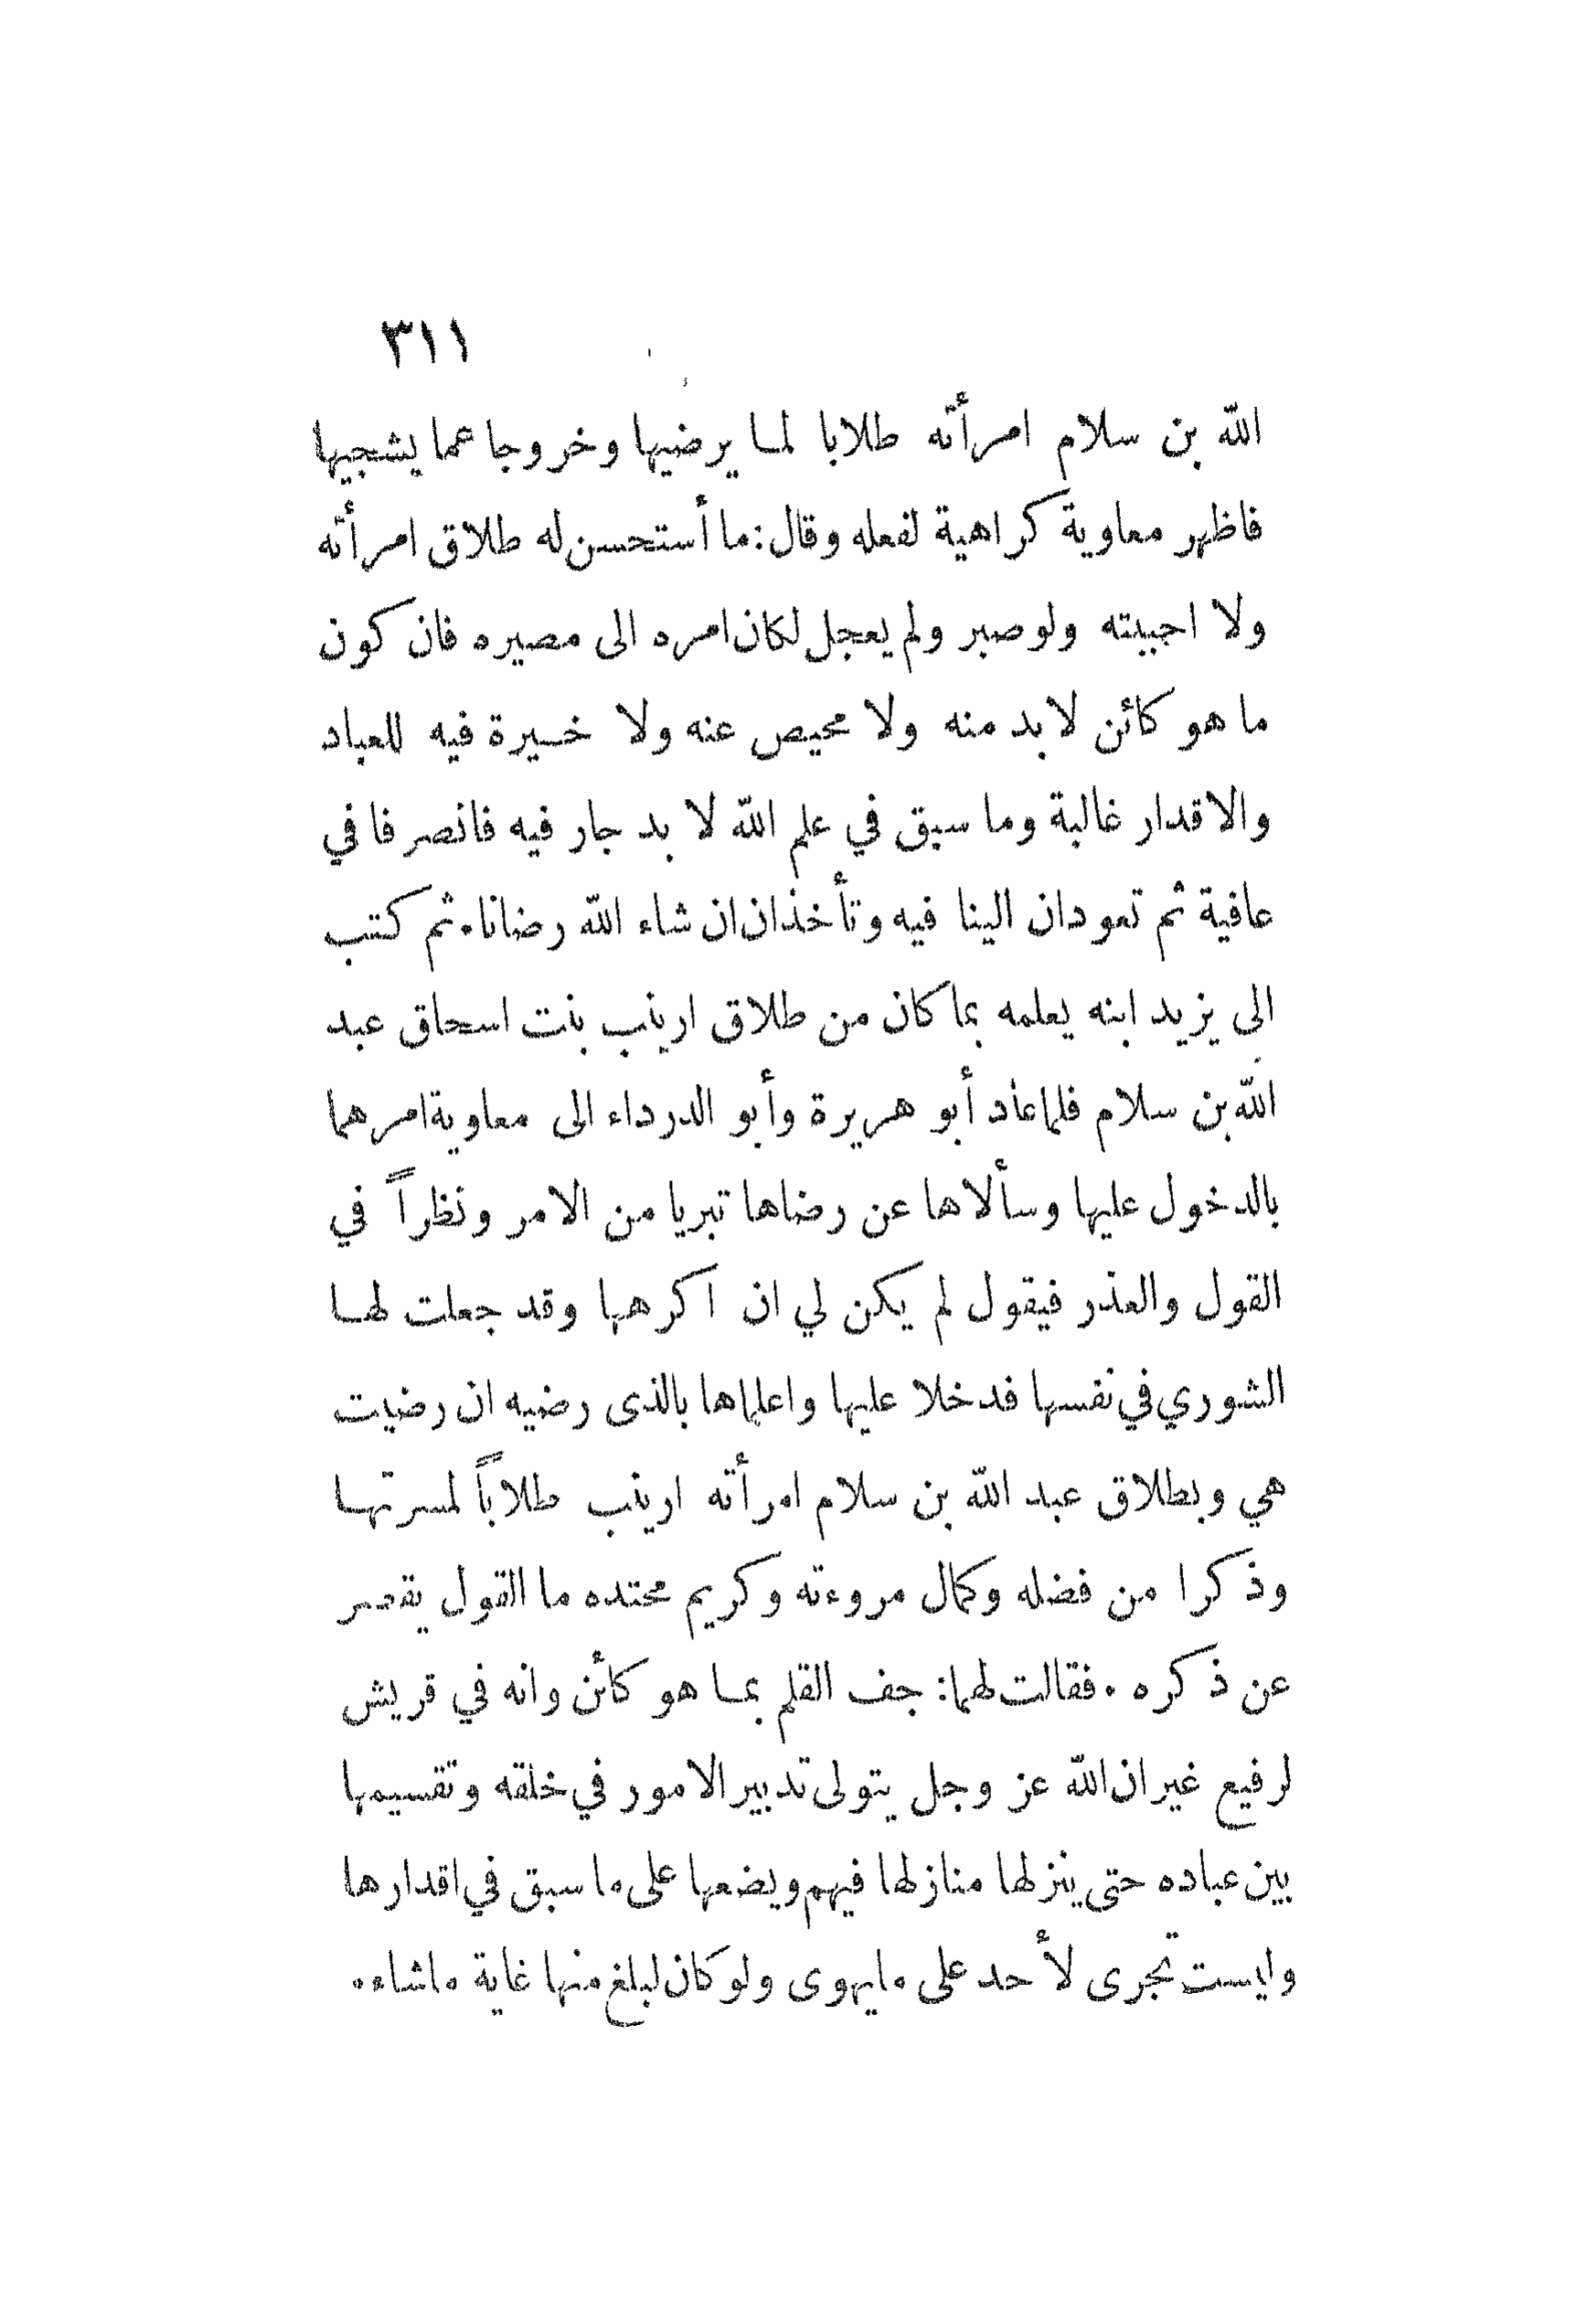 ٣١١
الله بن سلام امرأته طلابا لما يرضيها وخروجا عما يشجيها
فاظهر معاوية كراهية لفعله وقال: ما أستحسن له طلاق امرأته
ولا احببته ولو صبر ولم يعجل لكان امره الى مصيره فان كون
ما هو كائن لا بد منه ولا محيص عنه ولا خيرة فيه للعباد
والاقدار غالبة وما سبق في علم الله لا بد جار فيه فانصرفا في
عافية ثم تعودان الينا فيه وتأخذان ان شاء الله رضانا. ثم كتب
الى يزيد ابنه يعلمه بما كان من طلاق ارينب بنت اسحاق عبد
الله بن سلام فلما عاد أبو هريرة وأبو الدرداء الى معاوية امرهما
بالدخول عليها وسألاها عن رضاها تبريا من الامر ونظراً في
القول والعذر فيقول لم يكن لي ان اكرهها وقد جعلت لها
الشوري في نفسها فدخلا عليها واعلماها بالذى رضيه ان رضيت
هي وبطلاق عبد الله بن سلام امرأته ارينب طلاباً لمسرتها
وذكرا من فضله وكمال مروءته وكريم محتده ما القول يقصر
عن ذكره. فقالت لهما: جف القلم بما هو كائن وانه في قريش
لرفيع غير ان الله عز وجل يتولى تدبير الامور في خلقه وتقسيمها
بين عباده حتى ينزلها منازلها فيهم ويضعها على ما سبق في اقدارها
وليست تجرى لأحد على ما يهوى ولو كان لبلغ منها غاية ما شاء.